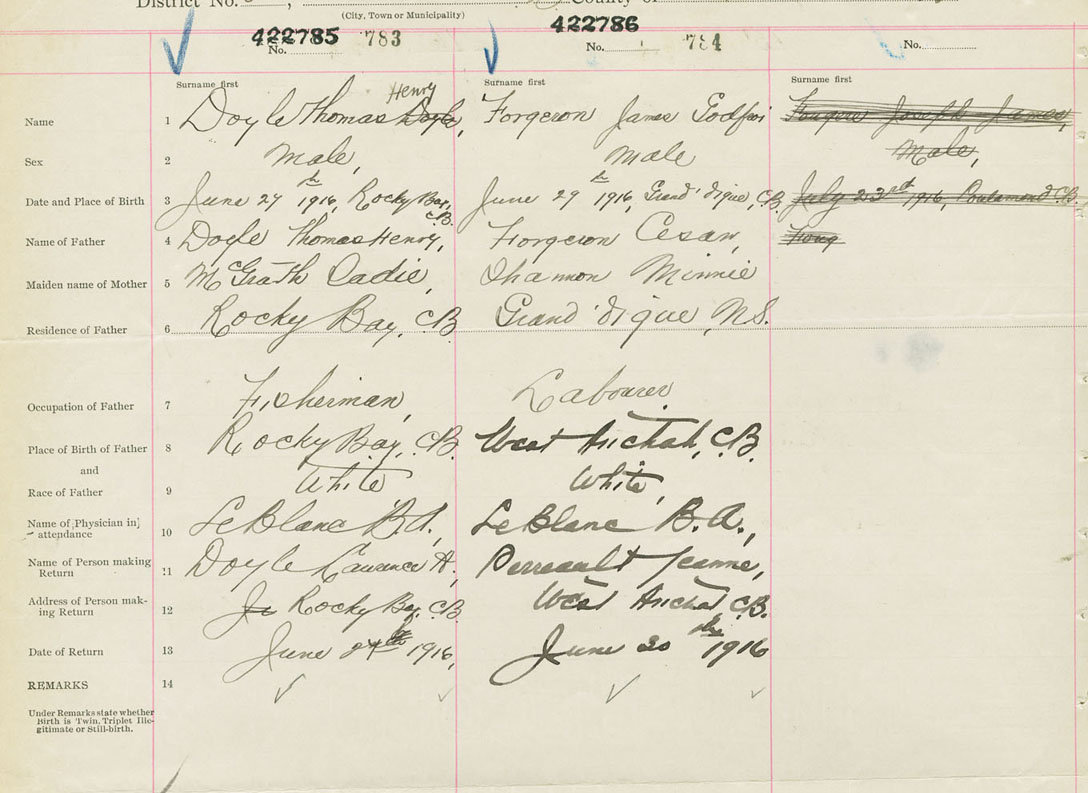 District No. , County of
(City, Town or Municipality)
422785 No. 783
422786 No. 784
No.
Surname first Surname first Surname first
Name 1 Doyle Thomas Henry Doyle, Forgeron James Godfroi Fougere Joseph James,
Sex 2 Male, Male Male,
Date and Place of Birth 3 June 27th 1916, Rocky Bay, C.B. June 29th 1916, Grand'digue, C.B. July 23rd 1916, C.B.
Name of Father 4 Doyle Thomas Henry, Forgeron Cesar, Foug
Maiden name of Mother 5 McGrath Sadie, Shannon Minnie
Residence of Father 6 Rocky Bay, C.B Grand'digue, N.S.
Occupation of Father 7 Fisherman, Labourer
Place of Birth of Father 8 Rocky Bay, C.B. West Arichat, C.B.
and
Race of Father 9 White White,
Name of Physician in attendance 10 LeBlanc B.A., LeBlanc B.A.,
Name of Person making Return 11 Doyle Lawrence H., Perreault Jeanne,
Address of Person making Return 12 Rocky Bay, C.B. West Arichat, C.B.
Date of Return 13 June 1916, June 30th 1916
REMARKS 14
Under Remarks state whether
Birth is Twin, Triplet Ille-
gitimate or Still-birth.